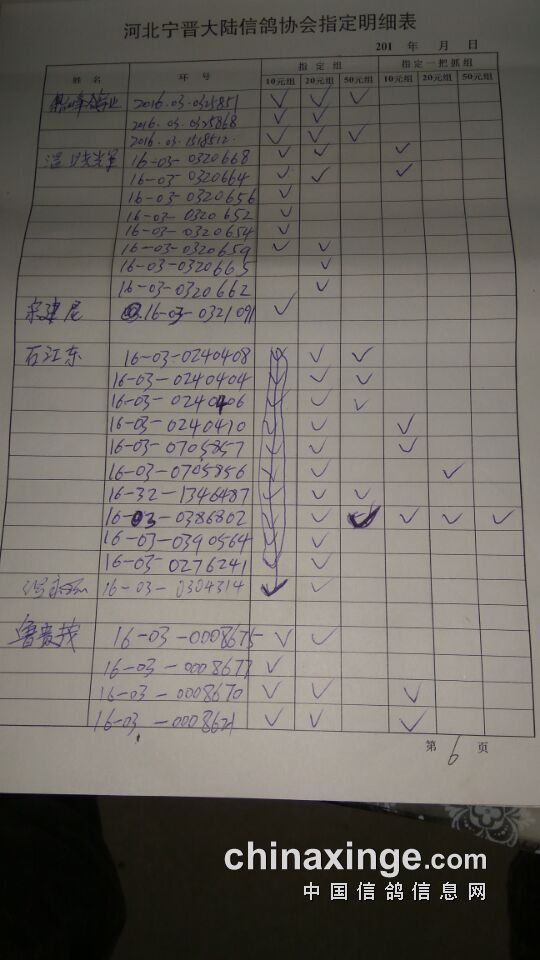 河北宁晋大陆信鸽协会指定明细表
201 年 月 日
姓 名 环 号 指 定 组 指定一把抓组
10元组 20元组 50元组 10元组 20元组 50元组
2016-03-0325851 ✓ ✓ ✓
2016-03-0325868 ✓ ✓
2016-03-1518512 ✓ ✓ ✓
16-03-0320668 ✓ ✓ ✓
16-03-0320664 ✓ ✓ ✓
16-03-0320656 ✓
16-03-0320652 ✓
16-03-0320654 ✓
16-03-0320659 ✓ ✓
16-03-0320665 ✓
16-03-0320662 ✓
宋建尼 16-03-0321091 ✓
石江东 16-03-0240408 ✓ ✓ ✓
16-03-0240404 ✓ ✓ ✓
16-03-0240406 ✓ ✓ ✓
16-03-0240410 ✓ ✓ ✓
16-03-0705857 ✓ ✓ ✓
16-03-0705856 ✓ ✓ ✓
16-32-1346487 ✓ ✓ ✓
16-03-0386802 ✓ ✓ ✓ ✓ ✓ ✓
16-03-0390564 ✓ ✓
16-03-0276241 ✓ ✓
16-03-0304314 ✓ ✓
鲁贵茂 16-03-0008675 ✓ ✓
16-03-0008677 ✓
16-03-0008670 ✓ ✓ ✓
16-03-0008621 ✓ ✓ ✓
第 6 页
chinaxinge.com
中国信鸽信息网